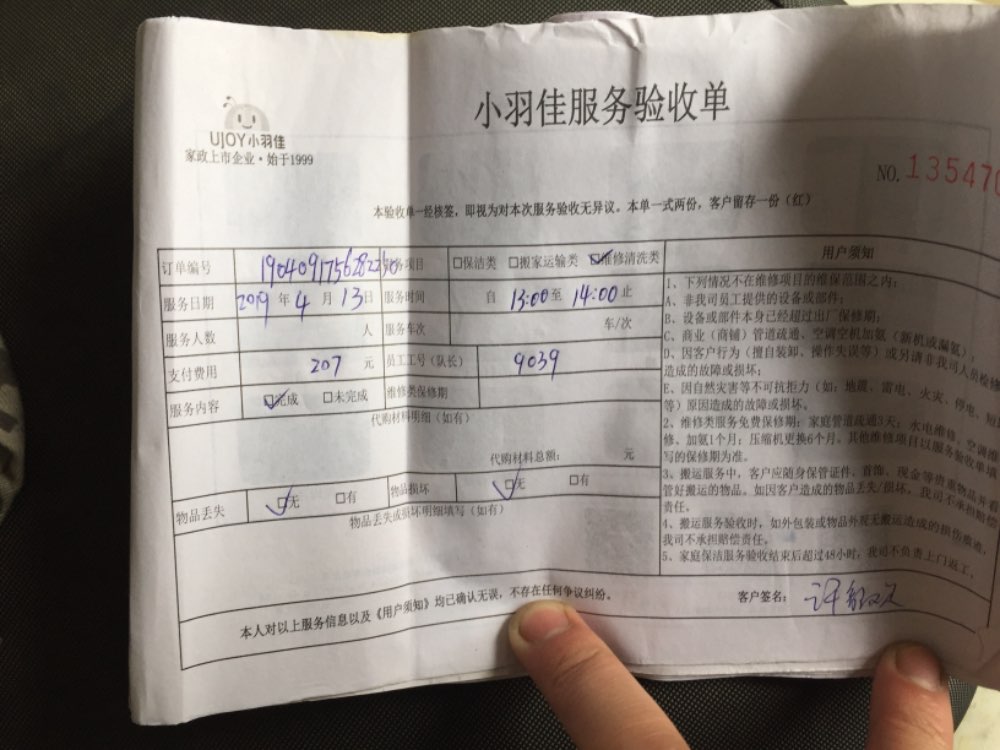 UJOY小羽佳
家政上市企业·始于1999
小羽佳服务验收单
NO. 135470
本验收单一经核签，即视为对本次服务验收无异议。本单一式两份，客户留存一份（红）
订单编号 服务项目 □保洁类 □搬家运输类 ☑维修清洗类
服务日期 2019 年 4 月 13 日 服务时间 自 13:00 至 14:00 止
服务人数 人 服务车次 车/次
支付费用 207 元 员工工号（队长） 9039
服务内容 ☑完成 □未完成 维修类保修期
代购材料明细（如有）
代购材料总额： 元
物品丢失 ☑无 □有 物品损坏 ☑无 □有
物品丢失或损坏明细填写（如有）
本人对以上服务信息以及《用户须知》均已确认无误，不存在任何争议纠纷。
客户签名：
用户须知
1、下列情况不在维修项目的维保范围之内：
A、非我司员工提供的设备或部件；
B、设备或部件本身已经超过出厂保修期；
C、商业（商铺）管道疏通、空调空机加氨（新机或漏氨）
D、因客户行为（擅自装卸、操作失误等）或另请非我司人员检修
造成的故障或损坏；
E、因自然灾害等不可抗拒力（如：地震、雷电、火灾、停电、短
等）原因造成的故障或损坏。
2、维修类服务免费保修期：家庭管道疏通3天；水电维修、空调维
修、加氨1个月；压缩机更换6个月。其他维修项目以服务验收单填
写的保修期为准。
3、搬运服务中，客户应随身保管证件、首饰、现金等贵重物品并看
管好搬运的物品。如因客户造成的物品丢失/损坏，我司不承担赔偿
责任。
4、搬运服务验收时，如外包装或物品外观无搬运造成的损伤痕迹，
我司不承担赔偿责任。
5、家庭保洁服务验收结束后超过48小时，我司不负责上门返工。